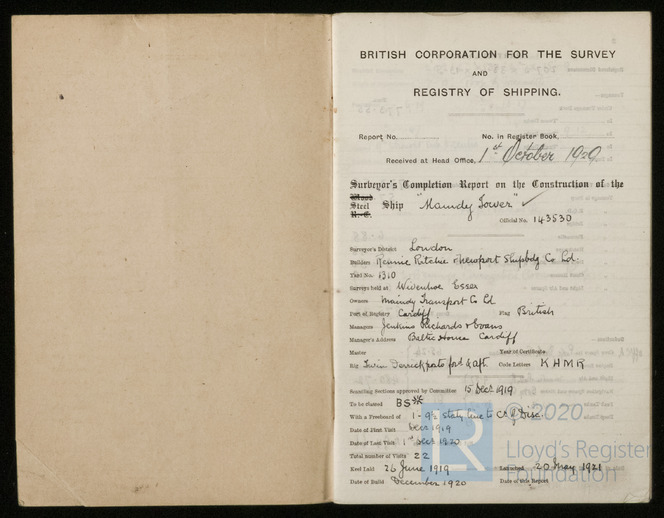 BRITISH CORPORATION FOR THE SURVEY
AND
REGISTRY OF SHIPPING.
Report No. No. in Register Book.
Received at Head Office, 1st October 1920
Surveyor's Completion Report on the Construction of the
Wood
Steel Ship "Maindy Tower" ✓
R.-C.
Official No. 143530
Surveyor's District London
Builders Rennie Ritchie & Newport Shipbdg Co Ld.
Yard No. 1310
Surveys held at Wivenhoe Essex
Owners Maindy Transport Co Ld
Port of Registry Cardiff Flag British
Managers Jenkins Richards & Evans
Manager's Address Baltic House Cardiff
Master Year of Certificate
Rig Twin Derrick posts ford & aft. Code Letters KHMR
Scantling Sections approved by Committee 15 Decr 1919
To be classed BS*
With a Freeboard of 1-9½ staty line to Cr of Disc.
Date of First Visit Decr 1919
Date of Last Visit 1st Decr 1920
Total number of Visits 22
Keel Laid 26 June 1919 Launched 20 May 1921
Date of Build December 1920 Date of this Report
© 2020
Lloyd's Register
Foundation